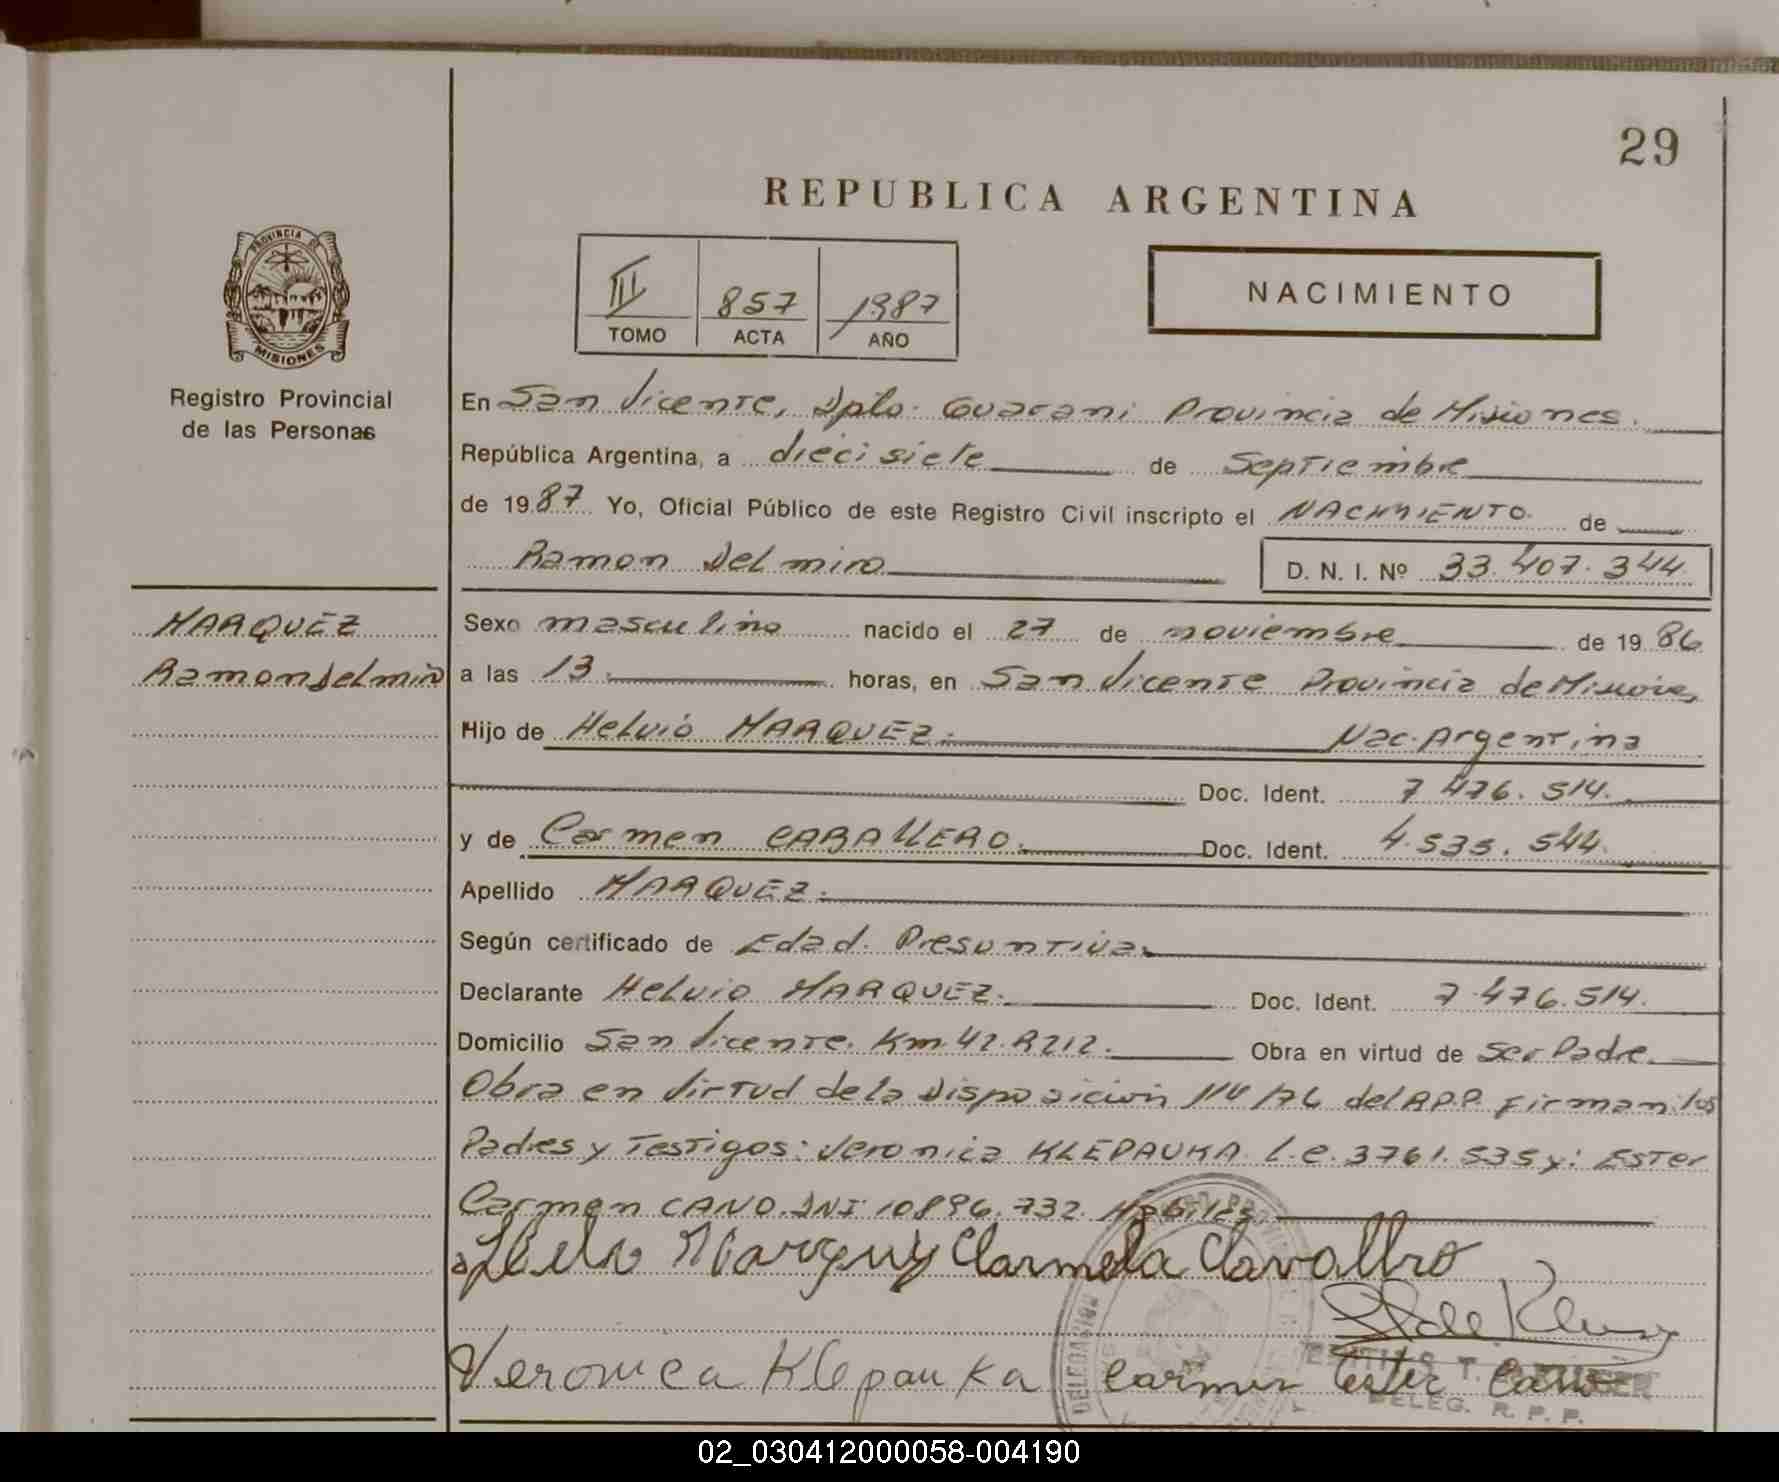 29
REPUBLICA ARGENTINA
PROVINCIA DE
MISIONES
Registro Provincial
de las Personas
III 857 1987
TOMO ACTA AÑO
NACIMIENTO
En San Vicente, Dpto. Guarani Provincia de Misiones.
República Argentina, a diecisiete de Septiembre
de 1987 Yo, Oficial Público de este Registro Civil inscripto el NACIMIENTO de
Ramon Delmiro D. N. I. Nº 33.407.344
MARQUEZ
Ramon Delmiro
Sexo masculino nacido el 27 de noviembre de 1986
a las 13. horas, en San Vicente Provincia de Misiones,
Hijo de Helvio MARQUEZ. Nac. Argentina
Doc. Ident. 7.476.514.
y de Carmen CABALLERO. Doc. Ident. 4.535.544.
Apellido MARQUEZ.
Según certificado de Edad. Presuntiva.
Declarante Helvio MARQUEZ. Doc. Ident. 7.476.514.
Domicilio San Vicente. Km. 42. R212. Obra en virtud de Ser Padre.
Obra en virtud de la Disposición 114/76 del R.P.P. Firman los
Padres y Testigos: Veronica KLEPAUKA L.e. 3761.535 y: Ester
Carmen CANO. DNI 10896.732. Habiles.
Marquez Carmela Cavallro
Veronica Klepauka Carmen Ester Cano
DELEGACION
DELEG. R. P. P.
02_030412000058-004190